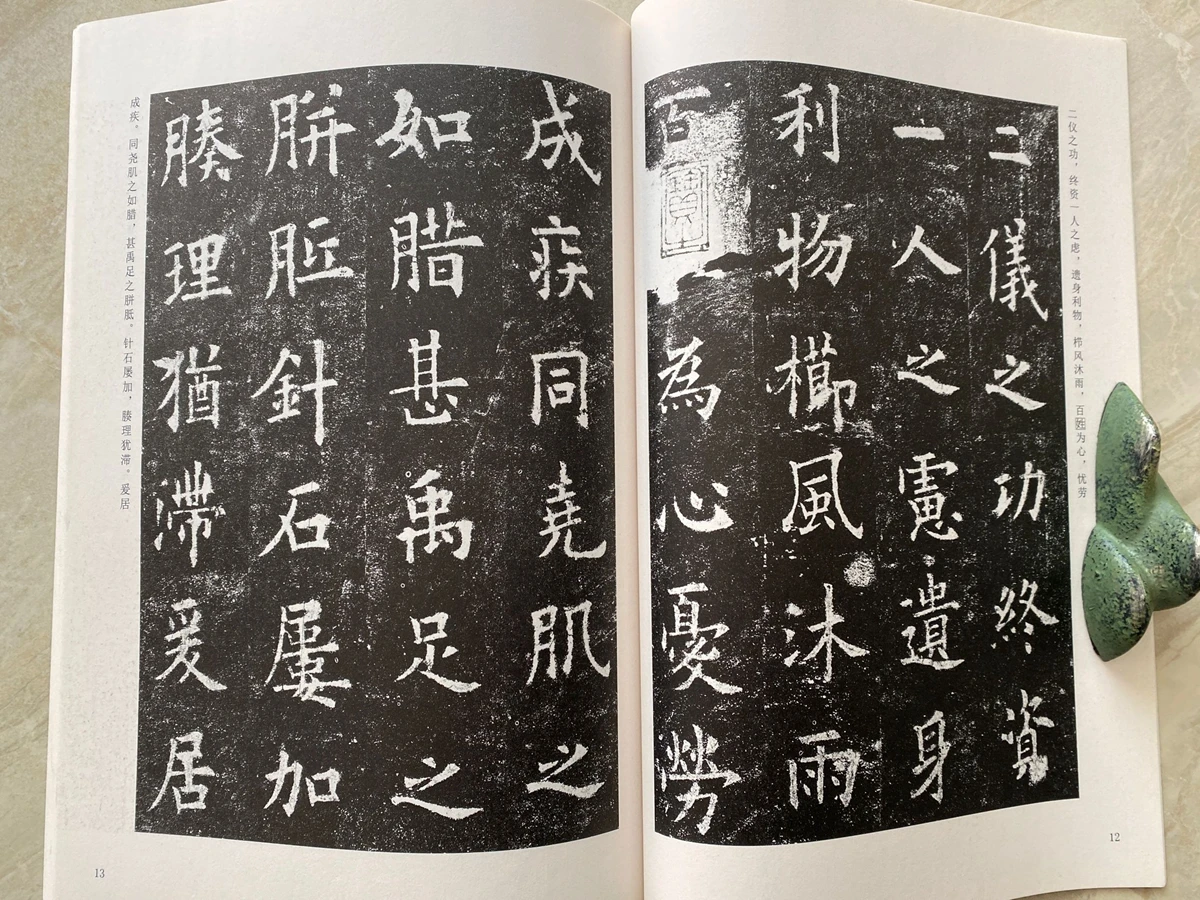 二仪之功，终资一人之虑，遗身利物，栉风沐雨，百姓为心，忧劳
二儀之功終資
一人之慮遺身
利物櫛風沐雨
百為心憂勞
12
成疾同堯肌之
如腊甚禹足之
胼胝針石屢加
腠理猶滯爰居
成疾。同尧肌之如腊，甚禹足之胼胝。针石屡加，腠理犹滞。爰居
13